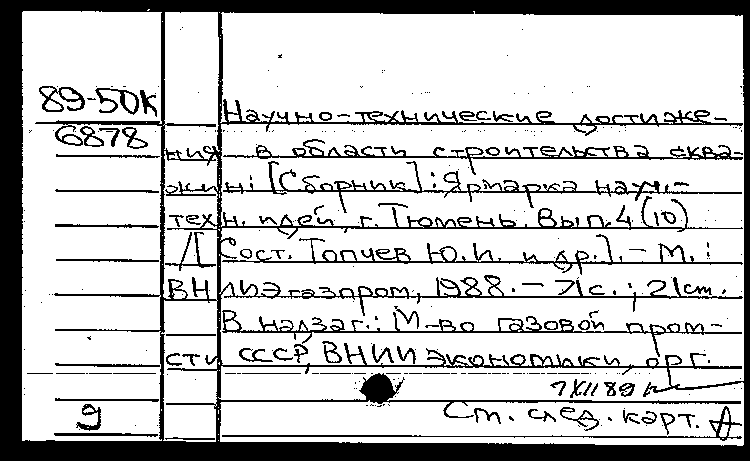 89-50к Научно-технические достиже-
6878 ния в области строительства сква-
жин: [Сборник]: Ярмарка науч.-
техн. идей, г. Тюмень. Вып. 4 (10)
/[Сост. Топчев Ю.И. и др.]. - М.:
ВНИИЭгазпром, 1988. - 71с.; 21см.
В надзаг.: М-во газовой пром-
сти СССР, ВНИИ экономики, орг.
7 XII 89
9 См. след. карт.